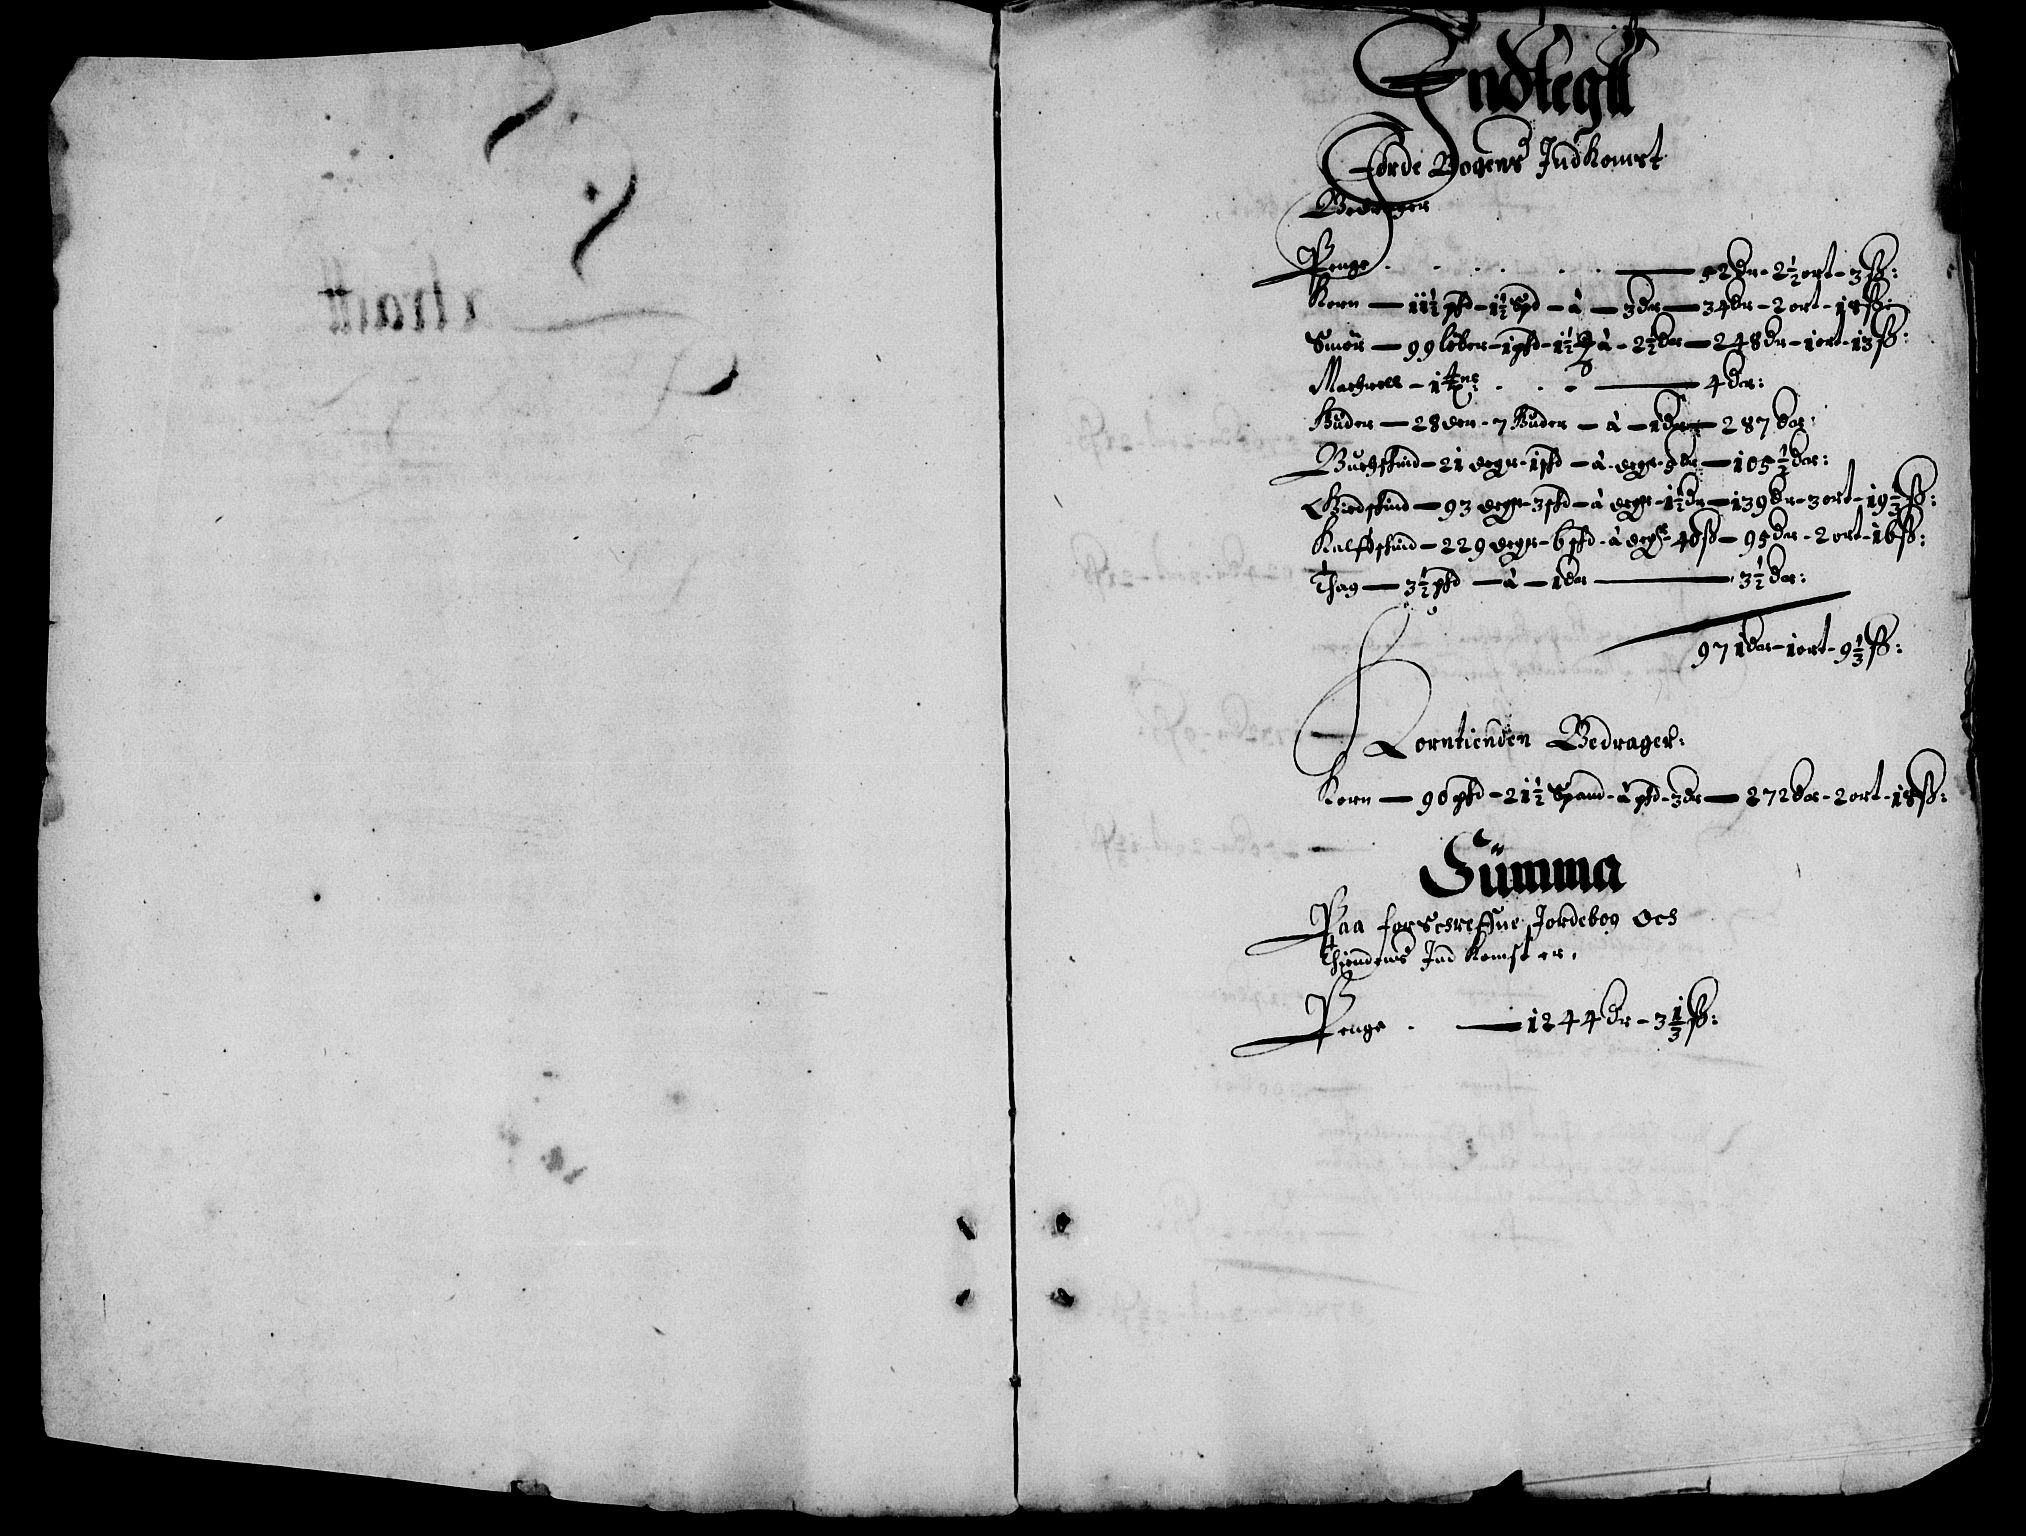 Indtegtt
Jorde Bogens Indkomst
Bedrager
Penge — 52 dr - 2½ ort - 3 ß:
Korn — 11½ pfd - 1½ Spd - à — 3 dr — 34 dr - 2 ort - 18 ß:
Smör — 99 löber - 1 pfd - 1½ à - 2½ dr — 248 dr - 1 ort - 13 ß:
Machrell - 1 tne — 4 dr:
Huder — 28 der - 7 Huder - à - 1 dr — 287 dr:
Buchskind - 21 degr - 1 skd - à degr 5 dr — 105½ dr:
Giedskind — 93 degr 3 skd - à degr - 1½ dr — 139 dr - 3 ort - 19⅓ ß:
Kalfskind - 229 degr - 6 skd - à degr 40 ß - 95 dr - 2 ort - 16 ß:
Thag — 3½ pfd — à — 1 dr — 3½ dr:
971 dr - 1 ort - 9⅓ ß:
Korntienden Bedrager:
Korn — 90 pfd - 21½ Spand - à pfd - 3 dr — 272 dr - 2 ort - 18 ß:
Sümma
Paa forscreffne Jordebog Och
Thiendens Ind Komst er,
Penge — 1244 dr - 3⅓ ß: